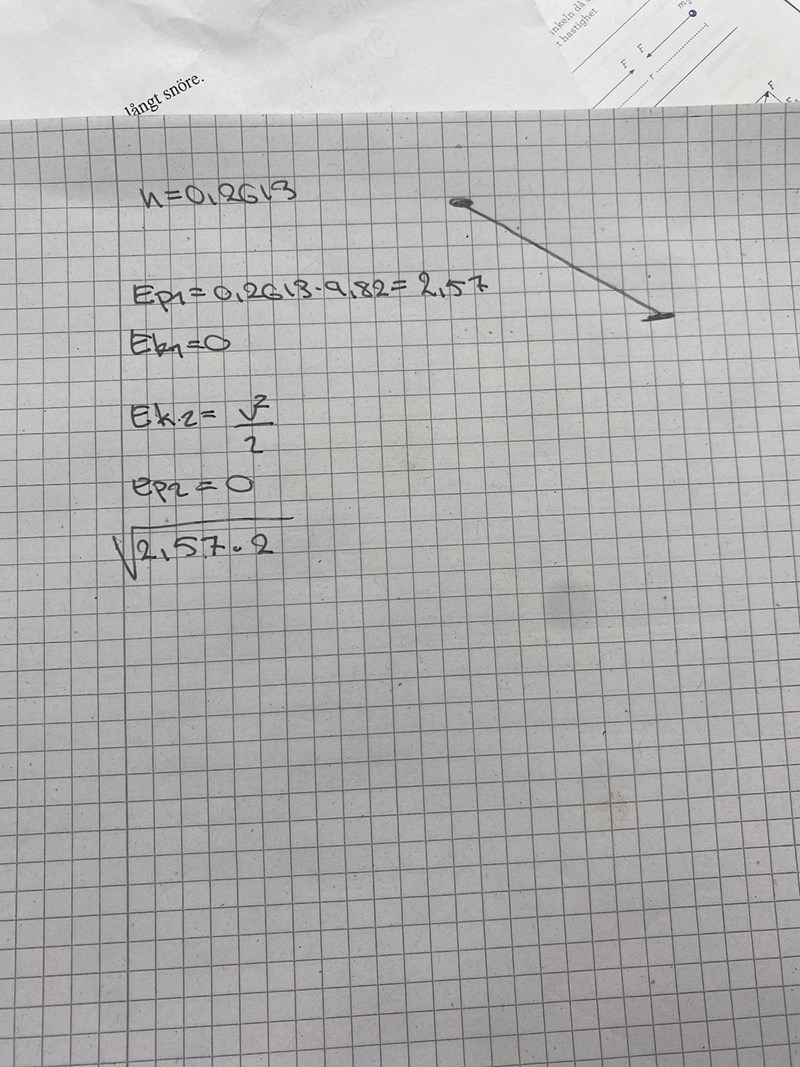 långt snöre.
inkeln då
t hastighet
m₂
F F
r
F
h=0,2613
Ep1=0,2613·9,82=2,57
Ek1=0
Ek2= v²/2
ep2=0
√2,57·2